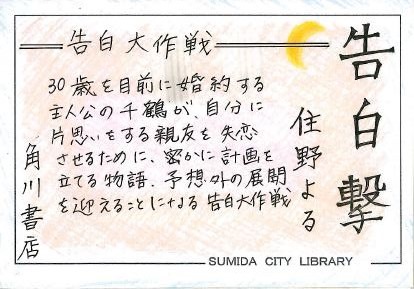 告白大作戦
告白撃
住野よる
30歳を目前に婚約する
主人公の千鶴が、自分に
片思いをする親友を失恋
させるために、密かに計画を
立てる物語。予想外の展開
を迎えることになる告白大作戦
角川書店
SUMIDA CITY LIBRARY